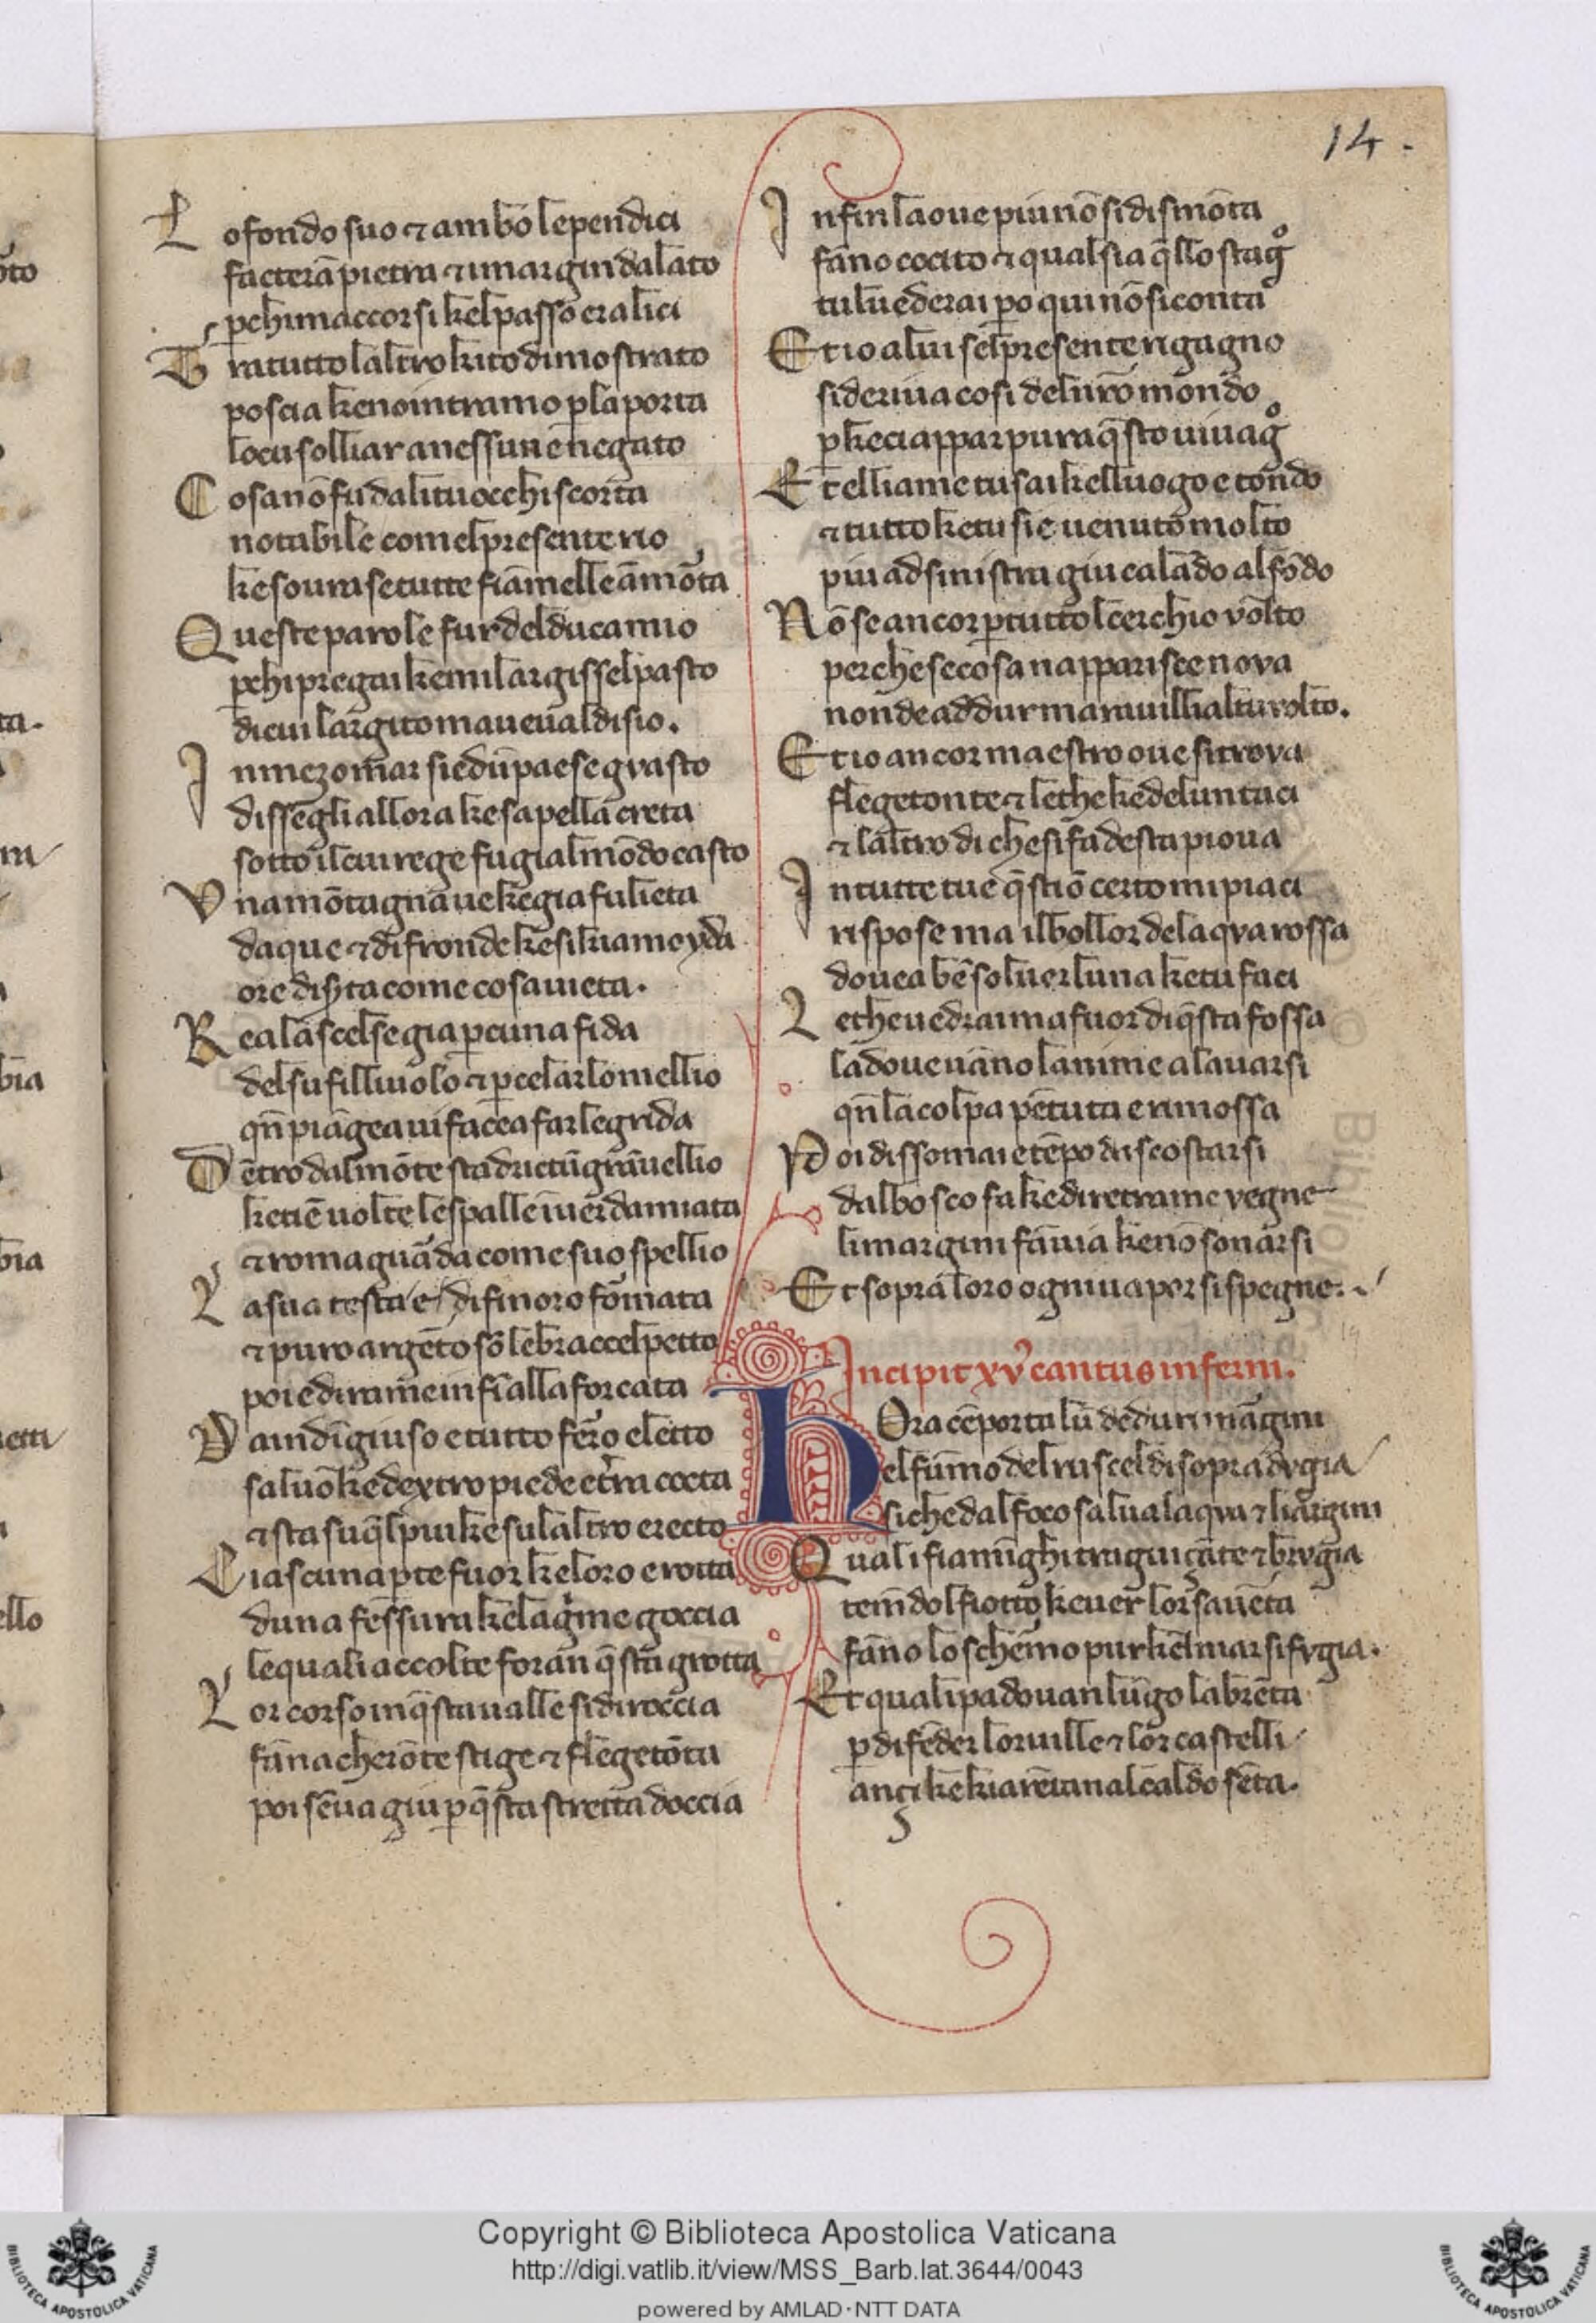 14.
L o fondo suo ⁊ ambo le pendici
facterā pietra ⁊ i margin da lato
pch imaccorsi kel passo era lici
T ra tutto laltro kito dimostrato
poscia ke noi intramo p la porta
lo cui solliar a nessun ē negato
C osa nō fu dali tu occhi scorta
notabile comel presente rio
ke soura se tutte fiāmelle āmōta
Q ueste parole fur del duca mio
pchi pregai ke mi largissel pasto
di cui largito maueual disio.
I n mezo mar siedū paese gvasto
dissegli allora ke sapella creta
sotto il cui rege fu gial mōdo casto
V na mōtagna ue ke gia fu lieta
daque ⁊ di fronde ke si kiamo yda
ore disyta come cosa uieta.
R ea la scelse gia per cuna fida
del su filliuolo ⁊ p celarlo mellio
qn̄ piāgea ui facea far le grida
D ētro dal mōte sta drictū grā uellio
ke tiē uolte le spalle iuer damiata
⁊ roma guāda come suo spellio
L a sua testa e di fin oro fōmata
⁊ puro argēto sō le braccel petto
poi e di rame in fī alla forcata
D a indi īgiuso e tutto ferro eletto
saluo kel dextro piede e terra cocta
⁊ sta su q̄l piu ke su laltro erecto
C iascuna pte fuor ke loro e rotta
duna fessura ke lagrime goccia
le quali accolte foran q̄sta grotta
L or corso in q̄sta ualle si diroccia
fāno acherōte stige ⁊ flegetōta
poi sē ua giu p q̄sta stretta doccia
I nfin la oue piu nō si dismōta
fāno cocito ⁊ qual sia q̄llo stagº
tu lu ederai po qui nō si conta
E t io a lui sel presente rigagno
si deriua cosi del nr̄o mondo
p ke ci appar pur a q̄sto uiuagº
E t elli a me tu sai kel luogo e tondo
⁊ tutto ke tu sie uenuto molto
piu ad sinistra giu calādo al fōdo
N ō se ancor p tutto l cerchio volto
perche se cosa nappariscе nova
non de addur marauillia l tu volto.
E t io ancor maestro oue si trova
flegetonte ⁊ lethe ke de lun taci
⁊ laltro di che si fa desta pioua
I n tutte tue q̄stiō certo mi piaci
rispose ma il bollor de laqva rossa
douea bē soluer luna ke tu faci
L ethe uedrai ma fuor di q̄sta fossa
la doue uāno lanime a lauarsi
qn̄ la colpa pētuta e rimossa
P oi disse omai e tēpo da scostarsi
dal bosco fa ke diretra me vegne
li margini fā uia ke nō sonarsi
E t sopra loro ogni uapor si spegne.
Incipit xv cantus inferni.
h Ora cēn porta lū de duri māgini
el fūmo del ruscel di sopra advgia
si che dal foco salua laqva ⁊ li argini
Q uali fiamīghi tra guiçāte ⁊ brvgia
temēdol fiotto ke uer lor sauēta
fāno lo schermo pur kel mar si fvgia.
E t quali padouan lūgo la brēta
p difēder lor uille ⁊ lor castelli
ançi ke kiarētana l caldo sēta.
Copyright © Biblioteca Apostolica Vaticana
http://digi.vatlib.it/view/MSS_Barb.lat.3644/0043
powered by AMLAD·NTT DATA